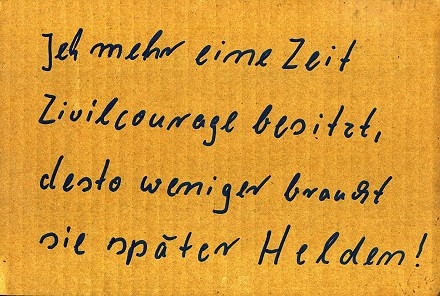 Jeh mehr eine Zeit
Zivilcourage besitzt,
desto weniger braucht
sie später Helden!